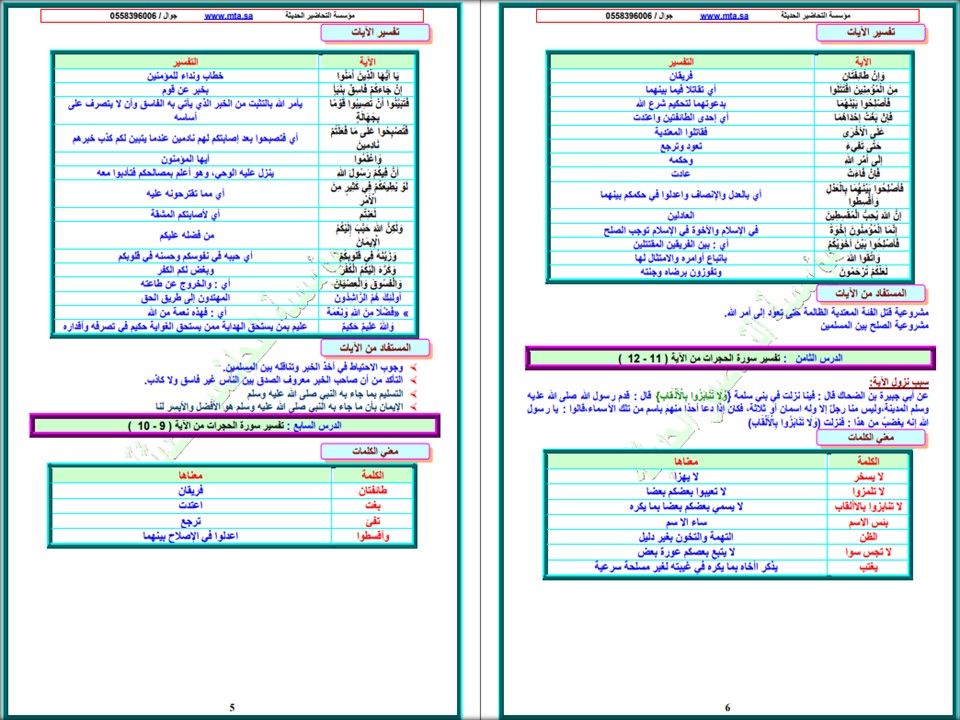 مؤسسة التحاضير الحديثة www.mta.sa جوال / 0558396006
تفسير الآيات
الآية التفسير
يَا أَيُّهَا الَّذِينَ آمَنُوا خطاب ونداء للمؤمنين
إِنْ جَاءَكُمْ فَاسِقٌ بِنَبَإٍ بخبر عن قوم
فَتَبَيَّنُوا أَنْ تُصِيبُوا قَوْمًا يأمر الله بالتثبت من الخبر الذي يأتي به الفاسق وأن لا يتصرف على
بِجَهَالَةٍ أساسه
فَتُصْبِحُوا عَلَى مَا فَعَلْتُمْ أي فتصبحوا بعد إصابتكم لهم نادمين عندما يتبين لكم كذب خبرهم
نَادِمِينَ
وَاعْلَمُوا أيها المؤمنون
أَنَّ فِيكُمْ رَسُولَ اللَّهِ ينزل عليه الوحي، وهو أعلم بمصالحكم فتأدبوا معه
لَوْ يُطِيعُكُمْ فِي كَثِيرٍ مِنَ أي مما تقترحونه عليه
الْأَمْرِ
لَعَنِتُّمْ أي لأصابتكم المشقة
وَلَكِنَّ اللَّهَ حَبَّبَ إِلَيْكُمُ من فضله عليكم
الْإِيمَانَ
وَزَيَّنَهُ فِي قُلُوبِكُمْ أي حببه في نفوسكم وحسنه في قلوبكم
وَكَرَّهَ إِلَيْكُمُ الْكُفْرَ وبغض لكم الكفر
وَالْفُسُوقَ وَالْعِصْيَانَ أي : والخروج عن طاعته
أُولَئِكَ هُمُ الرَّاشِدُونَ المهتدون إلى طريق الحق
» «فَضْلًا مِنَ اللَّهِ وَنِعْمَةً أي : فهذه نعمة من الله
وَاللَّهُ عَلِيمٌ حَكِيمٌ عليم بمن يستحق الهداية ممن يستحق الغواية حكيم في تصرفه وأقداره
المستفاد من الآيات
وجوب الاحتياط في أخذ الخبر وتناقله بين المسلمين.
التأكد من أن صاحب الخبر معروف الصدق بين الناس غير فاسق ولا كاذب.
التسليم بما جاء به النبي صلى الله عليه وسلم
الإيمان بأن ما جاء به النبي صلى الله عليه وسلم هو الأفضل والأيسر لنا
الدرس السابع : تفسير سورة الحجرات من الآية ( 9 - 10 )
معني الكلمات
الكلمة معناها
طائفتان فريقان
بغت اعتدت
تفئ ترجع
وأقسطوا اعدلوا في الإصلاح بينهما
5
مؤسسة التحاضير الحديثة www.mta.sa جوال / 0558396006
تفسير الآيات
الآية التفسير
وَإِنْ طَائِفَتَانِ فريقان
مِنَ الْمُؤْمِنِينَ اقْتَتَلُوا أي تقاتلا فيما بينهما
فَأَصْلِحُوا بَيْنَهُمَا بدعوتهما لتحكيم شرع الله
فَإِنْ بَغَتْ إِحْدَاهُمَا أي إحدى الطائفتين واعتدت
عَلَى الْأُخْرَى فقاتلوا المعتدية
حَتَّى تَفِيءَ تعود وترجع
إِلَى أَمْرِ اللَّهِ وحكمه
فَإِنْ فَاءَتْ عادت
فَأَصْلِحُوا بَيْنَهُمَا بِالْعَدْلِ أي بالعدل والإنصاف واعدلوا في حكمكم بينهما
وَأَقْسِطُوا
إِنَّ اللَّهَ يُحِبُّ الْمُقْسِطِينَ العادلين
إِنَّمَا الْمُؤْمِنُونَ إِخْوَةٌ في الإسلام والأخوة في الإسلام توجب الصلح
فَأَصْلِحُوا بَيْنَ أَخَوَيْكُمْ أي : بين الفريقين المقتتلين
وَاتَّقُوا اللَّهَ باتباع أوامره والامتثال لها
لَعَلَّكُمْ تُرْحَمُونَ وتفوزون برضاه وجنته
المستفاد من الآيات
مشروعية قتل الفئة المعتدية الظالمة حتى تعود إلى أمر الله.
مشروعية الصلح بين المسلمين
الدرس الثامن : تفسير سورة الحجرات من الآية ( 11 - 12 )
سبب نزول الآية:
عن أبي جبيرة بن الضحاك قال : فينا نزلت في بني سلمة {وَلَا تَنَابَزُوا بِالْأَلْقَابِ} قال : قدم رسول الله صلى الله عليه
وسلم المدينة،وليس منا رجل إلا وله اسمان أو ثلاثة، فكان إذا دعا أحدًا منهم باسم من تلك الأسماء،قالوا : يا رسول
الله إنه يغضب من هذا : فنزلت (وَلَا تَنَابَزُوا بِالْأَلْقَابِ)
معني الكلمات
الكلمة معناها
لا يسخر لا يهزا
لا تلمزوا لا تعيبوا بعضكم بعضا
لا تنابزوا بالاألقاب لا يسمي بعضكم بعضا بما يكره
بئس الاسم ساء الا سم
الظن التهمة والتخون بغير دليل
لا تجس سوا لا يتبع بعضكم عورة بعض
يغتب يذكر اأخاه بما يكره في غيبته لغير مسلحة سرعية
6